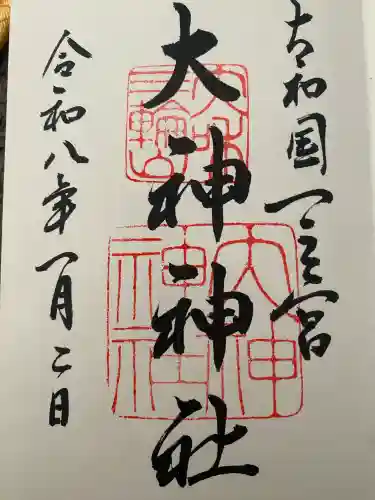 大和国一之宮
大神神社
大神神社
令和八年一月二日